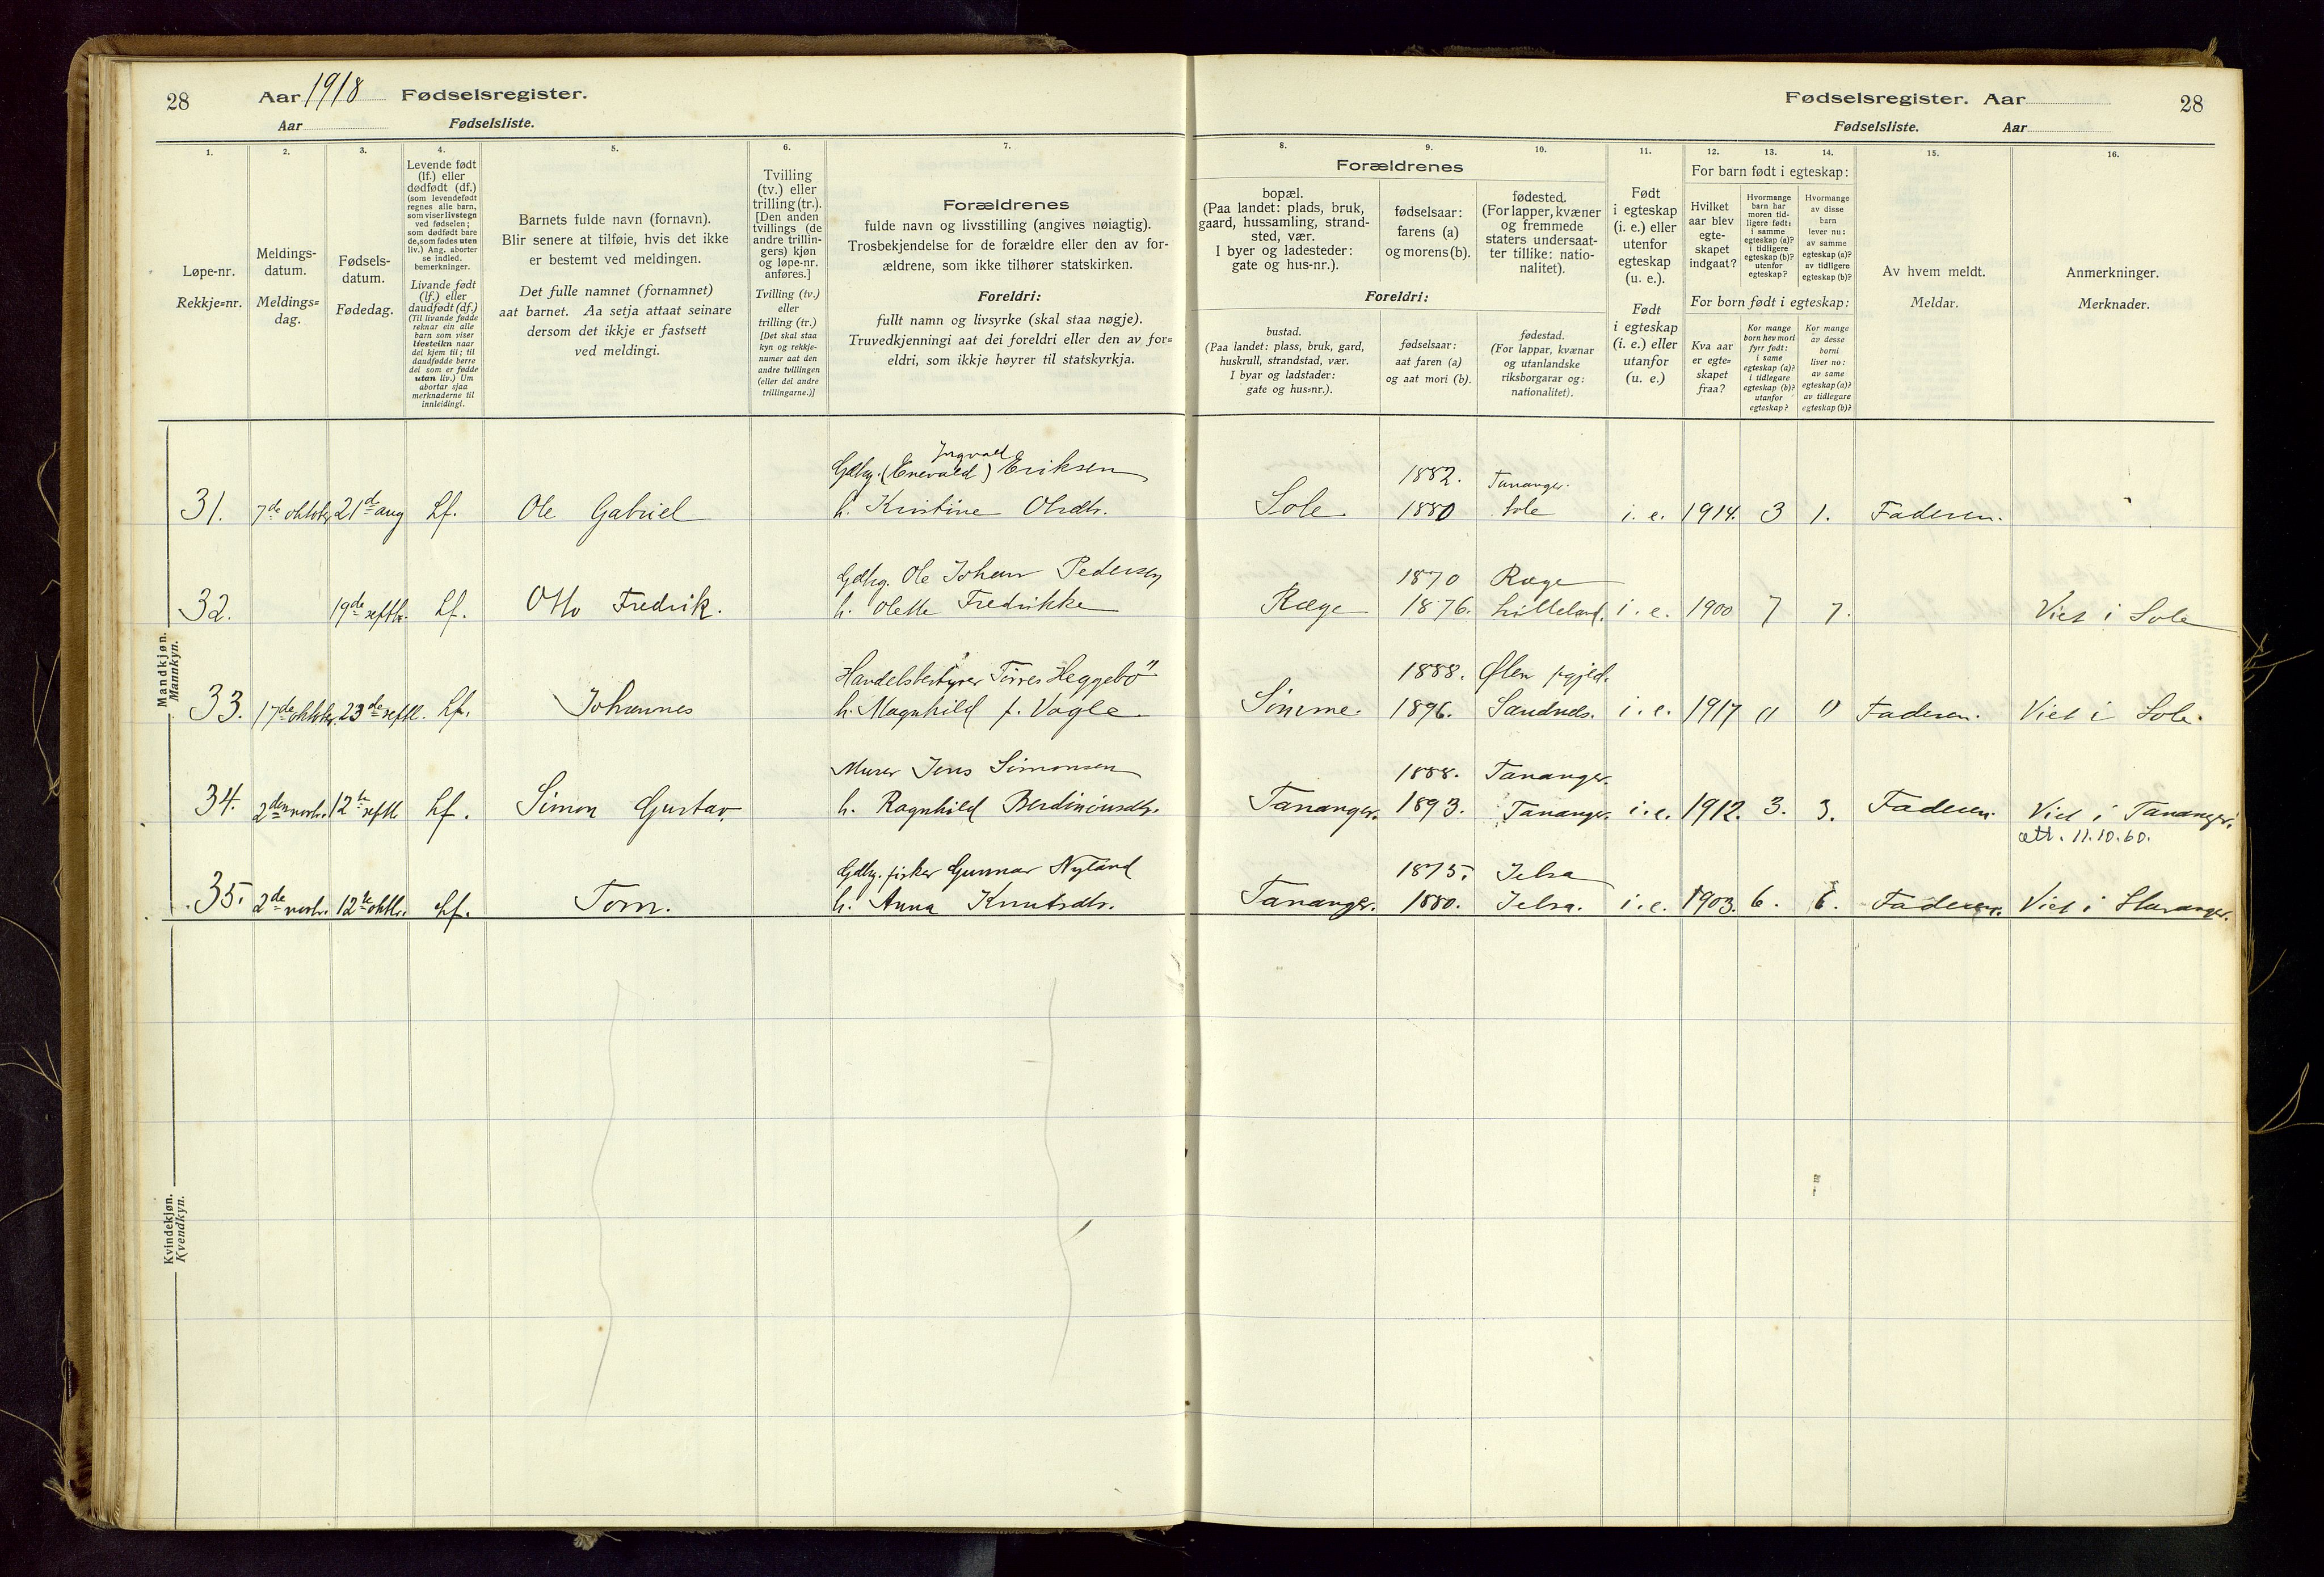 28
Aar 1918 Fødselsregister.
Aar Fødselsliste.
Fødselsregister. Aar
28
Fødselsliste. Aar
1.
Løpe-nr.
Rekkje=nr.
2.
Meldings-
datum.
Meldings=
dag.
3.
Fødsels-
datum.
Fødedag.
4.
Levende født
(lf.) eller
dødfødt (df.)
(som levendefødt
regnes alle barn,
som viser livstegn
ved fødselen;
som dødfødt bare
de, som fødes uten
liv.) Ang. aborter
se indled.
bemerkninger.
Livande født
(lf.) eller
daudfødt (df.)
(Til livande fødde
reknar ein alle
barn som viser
livsteikn naar
dei kjem til; til
daudfødde berre
dei som er fødde
utan liv.) Um
abortar sjaa
merknaderne til
innleidingi.
5.
Barnets fulde navn (fornavn).
Blir senere at tilføie, hvis det ikke
er bestemt ved meldingen.
Det fulle namnet (fornamnet)
aat barnet. Aa setja attaat seinare
dersom det ikkje er fastsett
ved meldingi.
6.
Tvilling
(tv.) eller
trilling (tr.).
[Den anden
tvillings (de
andre trillin-
gers) kjøn
og løpe-nr.
anføres.]
Tvilling (tv.)
eller
trilling (tr.)
[Det skal staa
kyn og rekkje-
numer aat den
andre tvillingen
(eller dei andre
trillingarne.)]
7.
Forældrenes
fulde navn og livsstilling (angives nøiagtig).
Trosbekjendelse for de forældre eller den av for-
ældrene, som ikke tilhører statskirken.
Foreldri:
fullt namn og livsyrke (skal staa nøgje).
Truvedkjenningi aat dei foreldri eller den av for=
eldri, som ikkje høyrer til statskyrkja.
Forældrenes
8.
bopæl.
(Paa landet: plads, bruk,
gaard, hussamling, strand-
sted, vær.
I byer og ladesteder:
gate og hus-nr.).
9.
fødselsaar:
farens (a)
og morens (b).
10.
fødested.
(For lapper, kvæner
og fremmede
staters undersaat-
ter tillike: natio-
nalitet).
Foreldri:
bustad.
(Paa landet: plass, bruk, gard,
huskrull, strandstad, vær.
I byar og ladstader:
gate og hus=nr.).
fødselsaar:
aat faren (a)
og aat mori (b).
fødestad.
(For lappar, kvænar
og utanlandske
riksborgarar og:
nationalitet).
11.
Født
i egteskap
(i. e.) eller
utenfor
egteskap
(u. e.).
Født
i egteskap
(i. e.) eller
utanfor
(u. e.)
For barn født i egteskap:
12.
Hvilket
aar blev
egte-
skapet
indgaat?
13.
Hvormange
barn har
moren tid-
ligere født:
i samme
egteskap (a)?
i tidligere
egteskap (b)?
utenfor
egteskap?
14.
Hvormange
av disse
barn
lever nu:
av samme
egteskap (a)?
av tidligere
egteskap (b)?
For born født i egteskap:
Kva aar
er egte=
skapet
fraa?
Kor mange
born hev mori
fyrr født:
i same
egteskap (a)?
i tidlegare
egteskap (b)?
utanfor
egteskap?
Kor mange
av desse
borni
liver no:
av same
egteskap (a)?
av tidlegare
egteskap (b)?
15.
Av hvem meldt.
Meldar.
16.
Anmerkninger.
Merknader.
Mandkjøn.
Mannkyn.
Ingvald
Gdbg. (Enevald) Eriksen 1882. Tananger.
31. 7de oktober 21de aug Lf. Ole Gabriel h. Kristine Olsdtr. Sole. 1880 Sole i. e. 1914. 3 1. Faderen.
Gdbg. Ole Johan Pedersen 1870 Ræge
32. 19de septbr. Lf. Otto Fredrik. h. Olette Fredrikke Ræge 1876. Lilleland. i. e. 1900 7 7. Viet i Sole
Handelsbestyrer Tørres Heggebö 1888. Ølen prgjeld.
33. 17de oktober 23de septb. Lf. Johannes h. Magnhild f. Vagle Sømme. 1896. Sandnes. i. e. 1917 0 0 Faderen. Viet i Sole.
Murer Jens Simonsen 1888. Tananger.
34. 2den novbr. 12te septb. Lf. Simon Gustav. h. Ragnhild Berdiniusdtr. Tananger. 1893. Tananger. i. e. 1912. 3. 3. Faderen. Viet i Tananger.
att. 11.10.60.
Gdbg. fisker Gunnar Nyland 1875. Jelsa
35. 2de novbr. 12te oktbr. Lf. Tom. h. Anna Knutsdtr. Tananger. 1880. Jelsa. i. e. 1903. 6. 6. Faderen. Viet i Stavanger.
Kvindekjøn.
Kvendkyn.